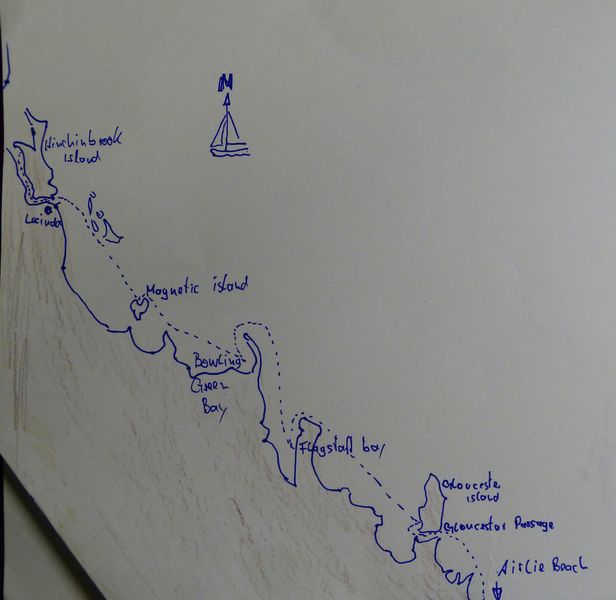 N
Hinchinbrook
island
Lucinda
Magnetic island
Bowling
Green
Bay
Flagstaff bay
Gloucester
island
Gloucester Passage
Airlie Beach